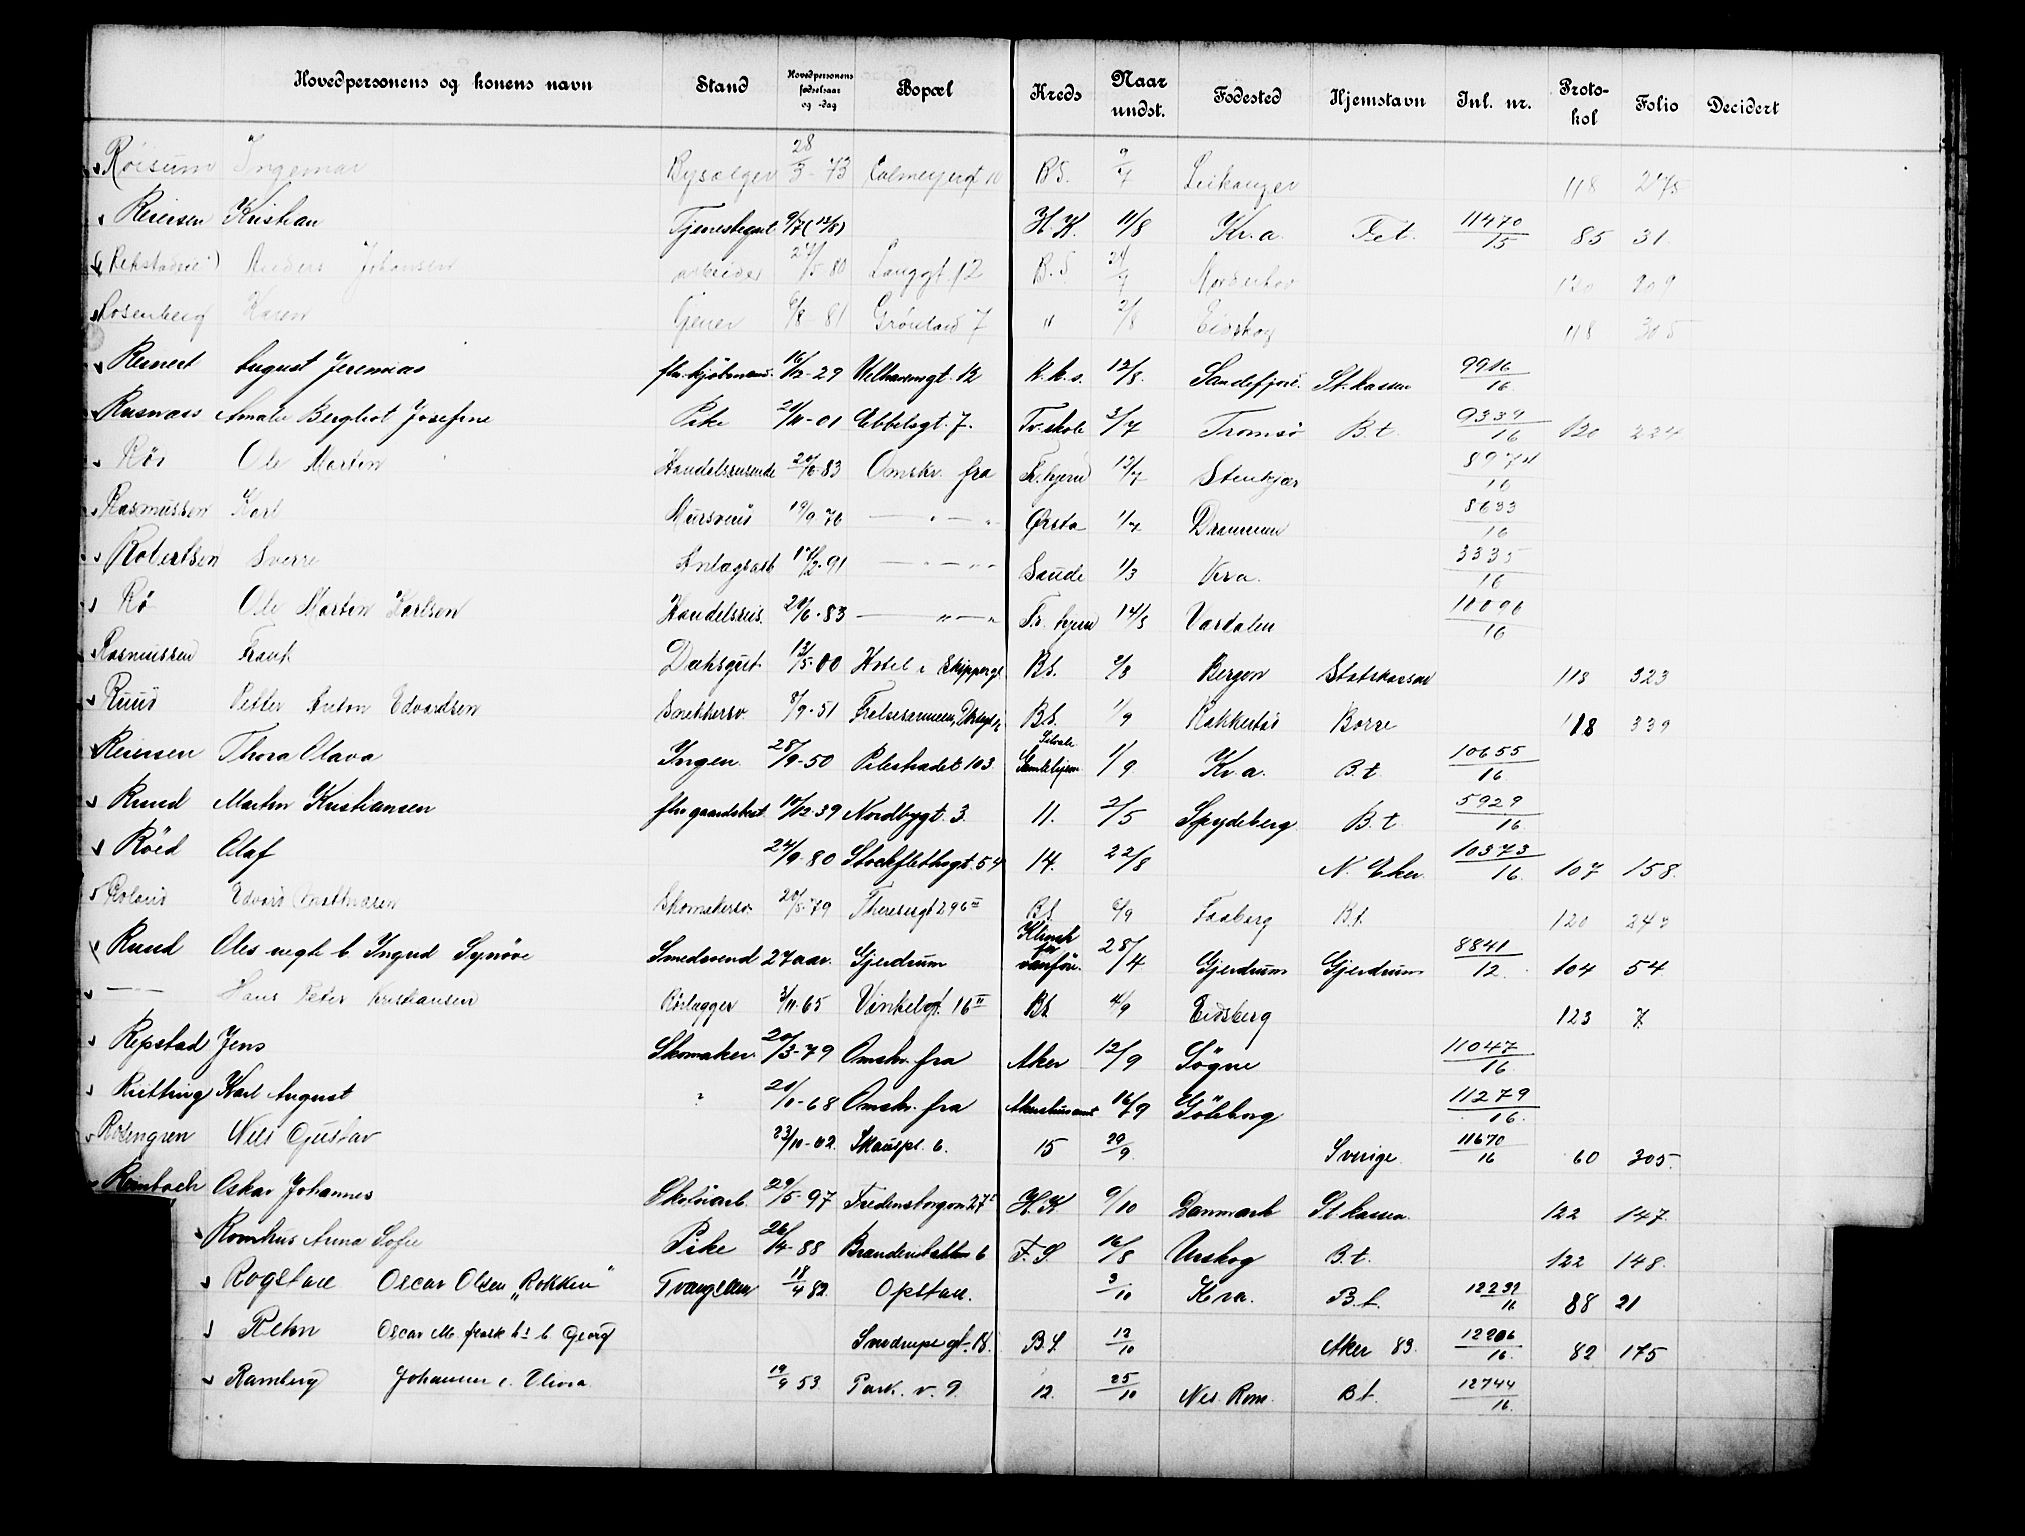 Hovedpersonens og konens navn Stand Hovedpersonens fødselsaar og -dag Bopæl Kreds Naar undst. Fødested Hjemstavn Inl. nr. Protokol Folio Decidert
Röisum Ingemar Bysælger 28/3-73 Calmeyergt 10 B.S. 9/7 Leikanger 118 275
Reiersen Kristian Tjenestegut 9/7 (12/8) H.K. 11/8 Kr.a. Fet. 11470/15 85 31.
Anders Johansen arbeider 24/5 80 Langgt. 12 B.S. Norderhov 120 209
Rosenberg Karen 6/8-81 Grönland 7 " 2/8 Eidskog 118 305
Reinert August Jeremias fhv. kjöbmand. 16/12-29 Welhavensgt. 12 K.k.s. 12/8. Sandefjord. St.kassen 9916/16.
Rasmuss Amalie Bergliot Josefine Pike 21/11-01 Ebbelsgt. 7. Tv.skole 3/7 Tromsö B.t. 9339/16 120 224
Rö Ole Martin Handelsreisende 20/6-83 Omskr. fra Fr.hjem 13/7 Stenkjær 8974/16
Rasmussen Karl Mursvend 19/9 76 — " — " Ørsta 1/7 Drammen 8633/16
Robertsen Sverre Anlægsarb 12-91 — " — " Saude 1/3 Kra. 3335/16
Rö Ole Martin Karlsen Handelsreis. 20/6-83 — " — " Fr. hjem 14/8 Værdalen 10096/16
Rasmussen Frank Dæksgut 13/5-00 Hotel i Skippergt B.S. 2/3 Bergen Statskassen 118 323
Ruud Petter Anton Edvardsen Snekkersv. 8/9-51 Frelsesarmeen, B.S. 1/9 Bakketeig Borre 118 339
Reiersen Thora Olava Ingen. 28/9-50 Pilestrædet 103 Gamlehjem 1/9 Kr.a. B.t. 10655/16
Ruud Martin Kristiansen fhv gaardsbest. 10/12 39 Nordbygt. 3. 11. 2/5 Spydeberg B.t. 5929/16.
Röed Olaf 24/9-80 Stockflethsgt. 54 14. 22/8 N. Eker. 10373/16. 107 158.
Roland Edvard Mathiasen Skomakersv. 20/5-79 Theresesgt 29 B.S. 6/9 Faaberg B.t. 120
Ruud Oles uegte b Ingrid Synöve Smedsvend 27 aar. Gjerdrum Klinik for vanföre. 28/4 Gjerdrum Gjerdrum 8841/12. 104 54
— Hans Peter Kristiansen Rörlægger 3/11-65 Vinkelgt. 16 II B.S. 4/9 Eidsberg 123 7.
Repstad Jens Skomaker. 20/3-79 Omskr. fra Aker 12/9 Sögne 11047/16.
Rietting Karl August ? 20/1-68 Omskr. fra Akershus amt 16/9 Göteborg 11279/16.
Rosengren Nils Gustav 23/11-02. Skauspl. 6. 15 29/9 Sverige 11670/16 60 305.
Rimbach Oskar Johannes Skotöiarb. 29/5-97 Fredensborgvn 27 H.K. 9/10 Danmark St.kassen. 122 147.
Romhus Anna Sofie Pike 26/4-88 Branderibakken 6 F.S. 16/8 Urskog B.t. 122 148.
Rogstad Oscar Olsen „Rokken" Tvangslem 18/4 82. Opstad. 3/10 Kra. B.t. 12232/16 88 21
Rehn Oscar M. b Georg Sverdrups gt. 18. B.S 12/10 Aker 83. 12206/16. 82 175
Ramberg Johanne e. Olivia 19/9 53 Park. v. 9. 12. 25/10 Nes. Rom. B.t. 12744/16.